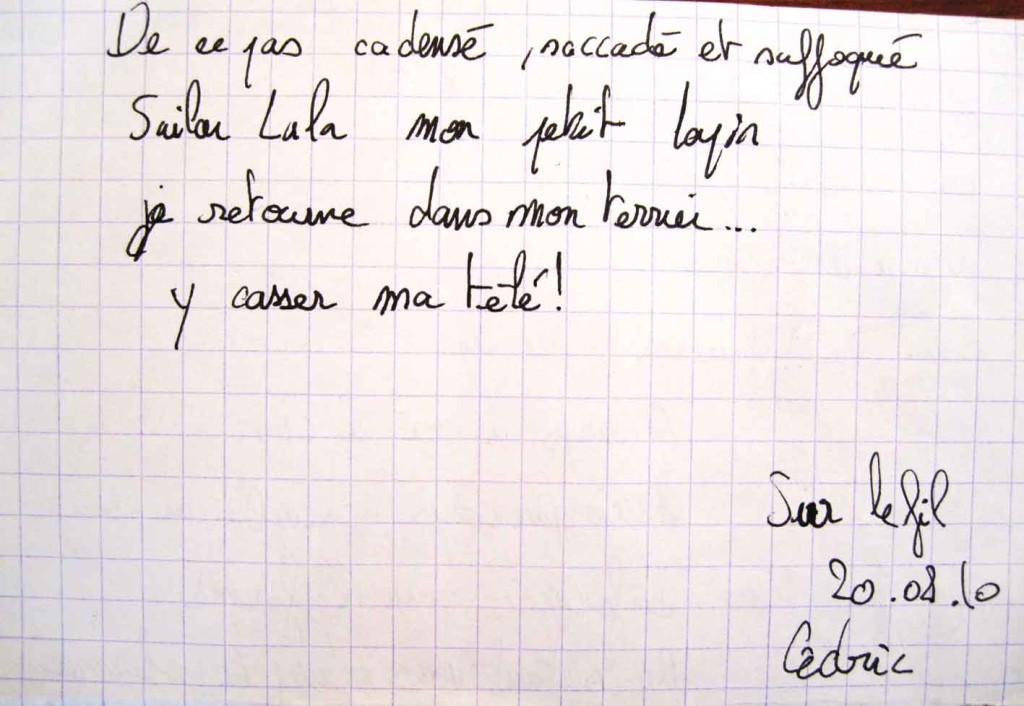 De ce pas cadensé, saccadé et suffoqué
Sailor Lula mon petit lapin
je retourne dans mon terrier...
y casser ma télé!
Sur le fil
20.08.10
Cédric